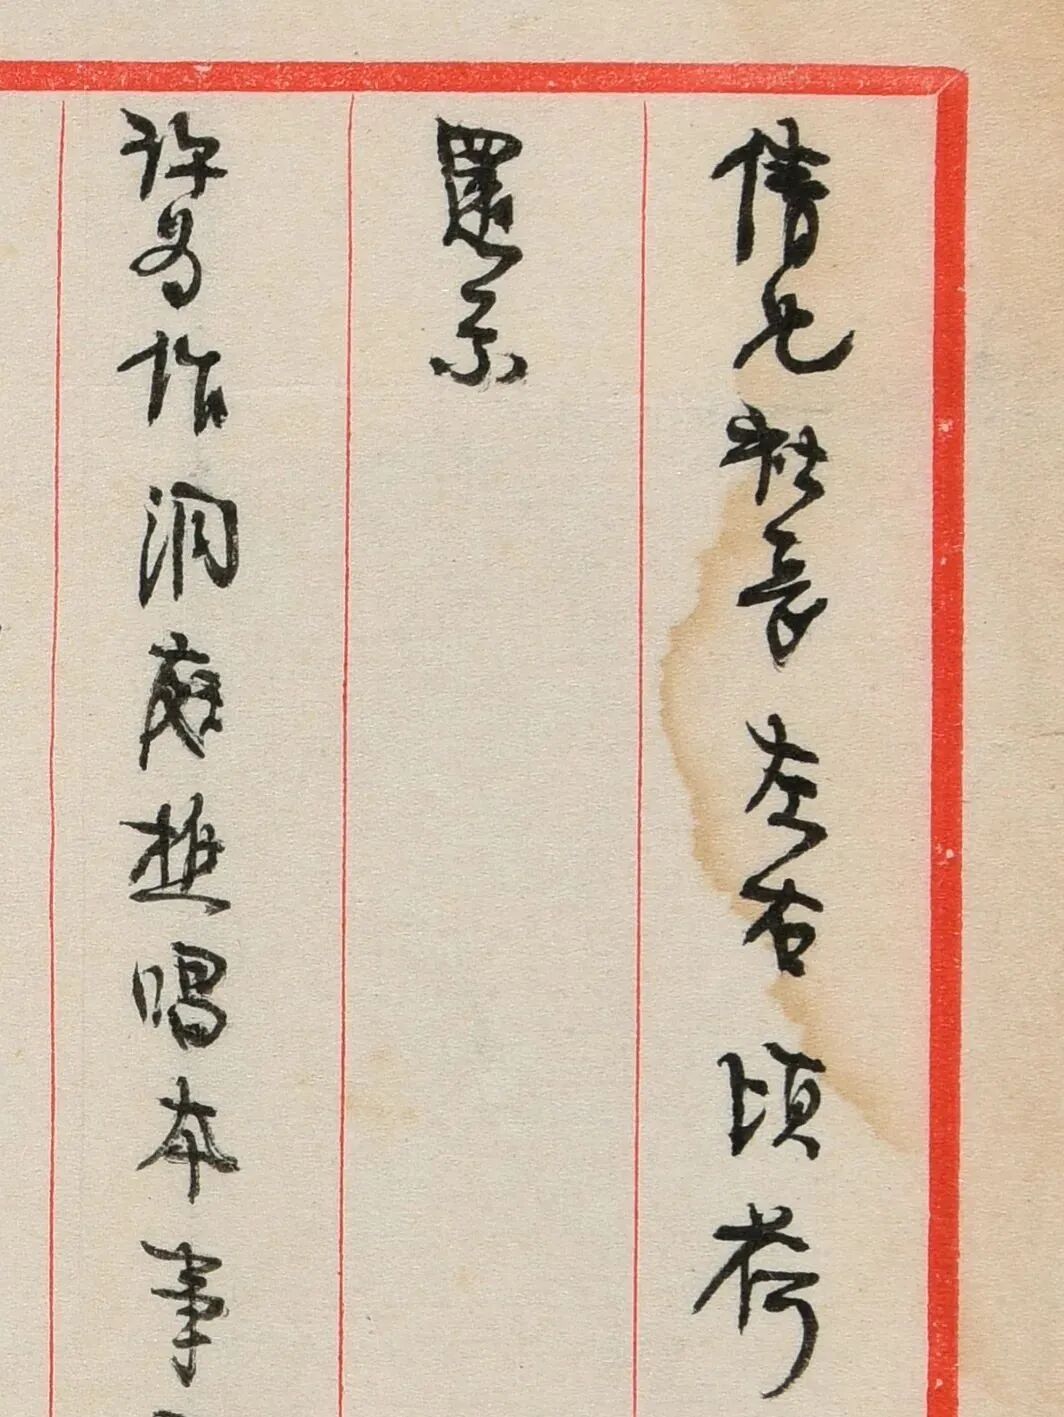 倩兄社長左右頃荷
還示
許為作洞庭樵唱本事